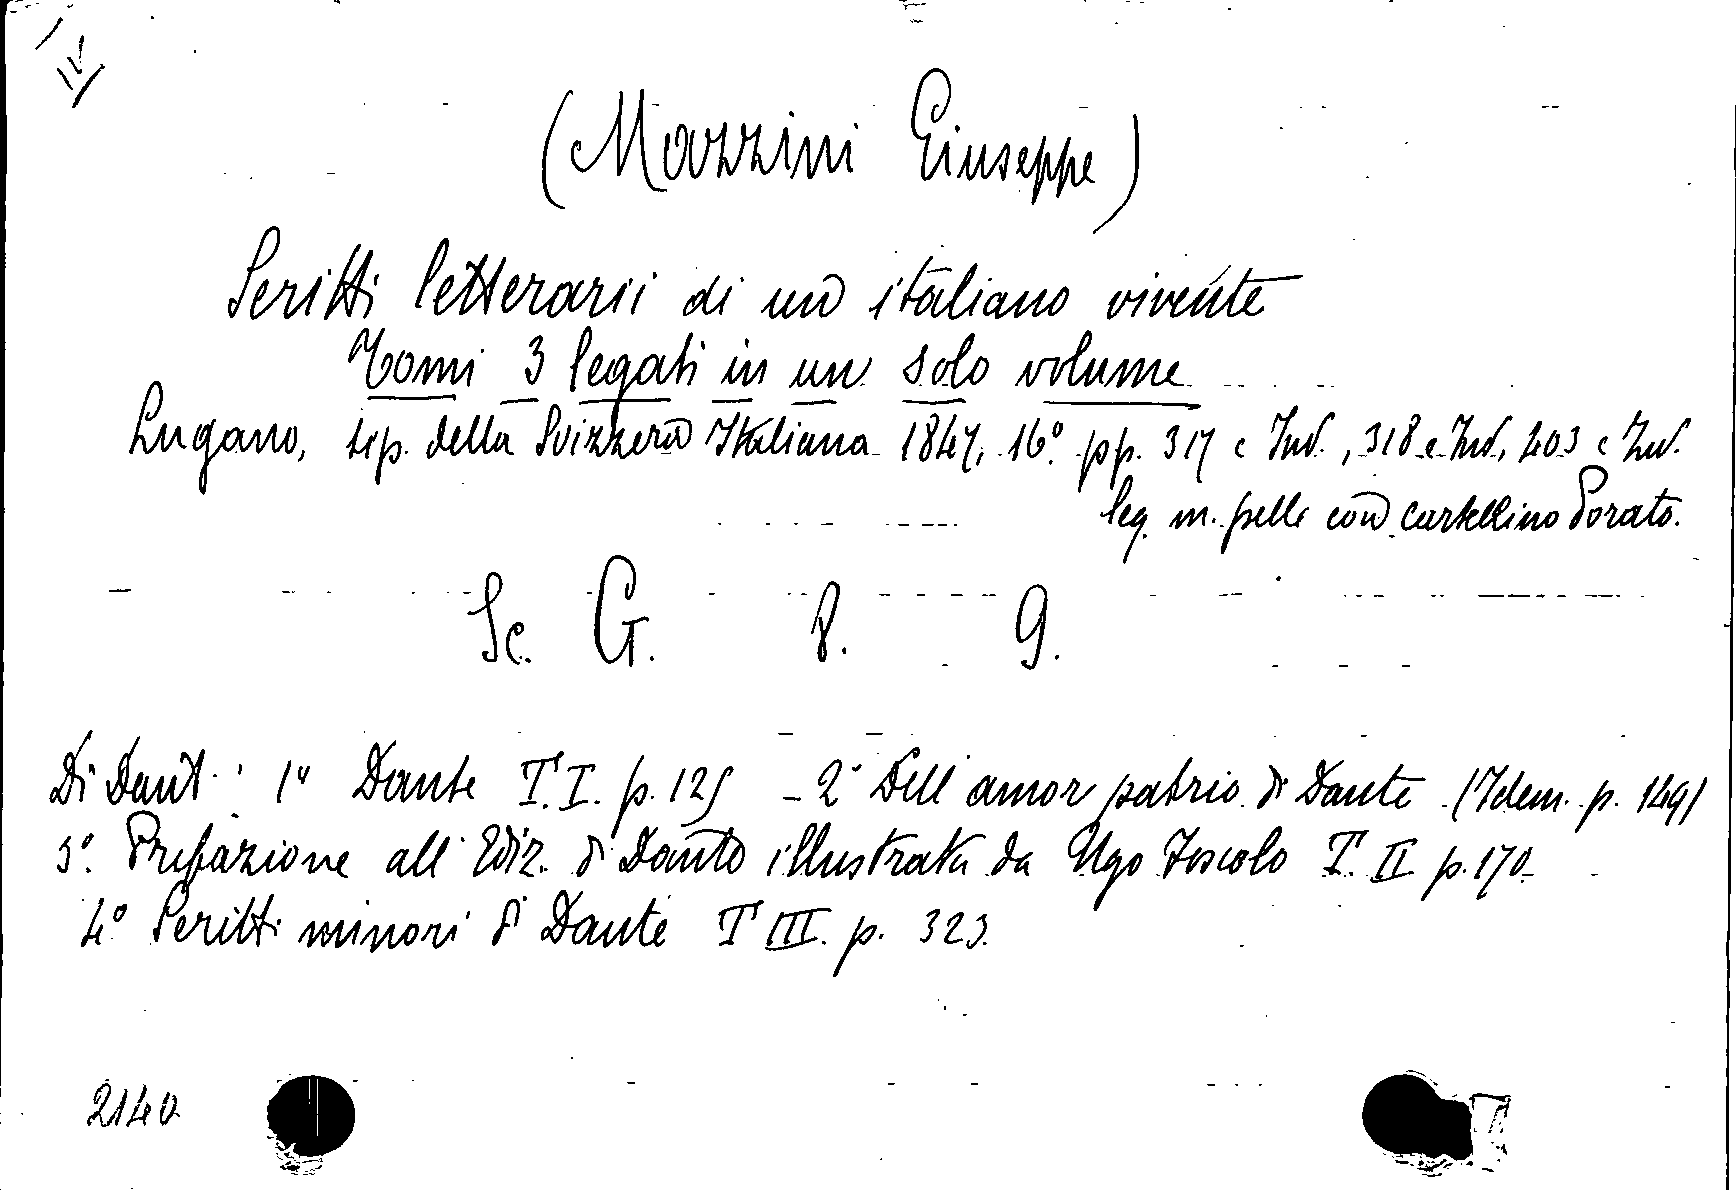 (Mazzini Giuseppe)
Scritti letterarii di un italiano vivente
Tomi 3 legati in un solo volume
Lugano, tip. della Svizzera Italiana 1847, 16° pp. 317 e Ind., 318 e Ind., 403 e Ind.
leg. m. pelle con cartellino dorato.
Sc. G. 8. 9.
Di Dant. : 1° Dante T. I. p. 125 - 2° Dell'amor patrio di Dante (Idem. p. 149)
3°. Prefazione all'Ediz. di Dante illustrata da Ugo Foscolo T. II p. 170.
4° Scritti minori di Dante T III. p. 323.
2140